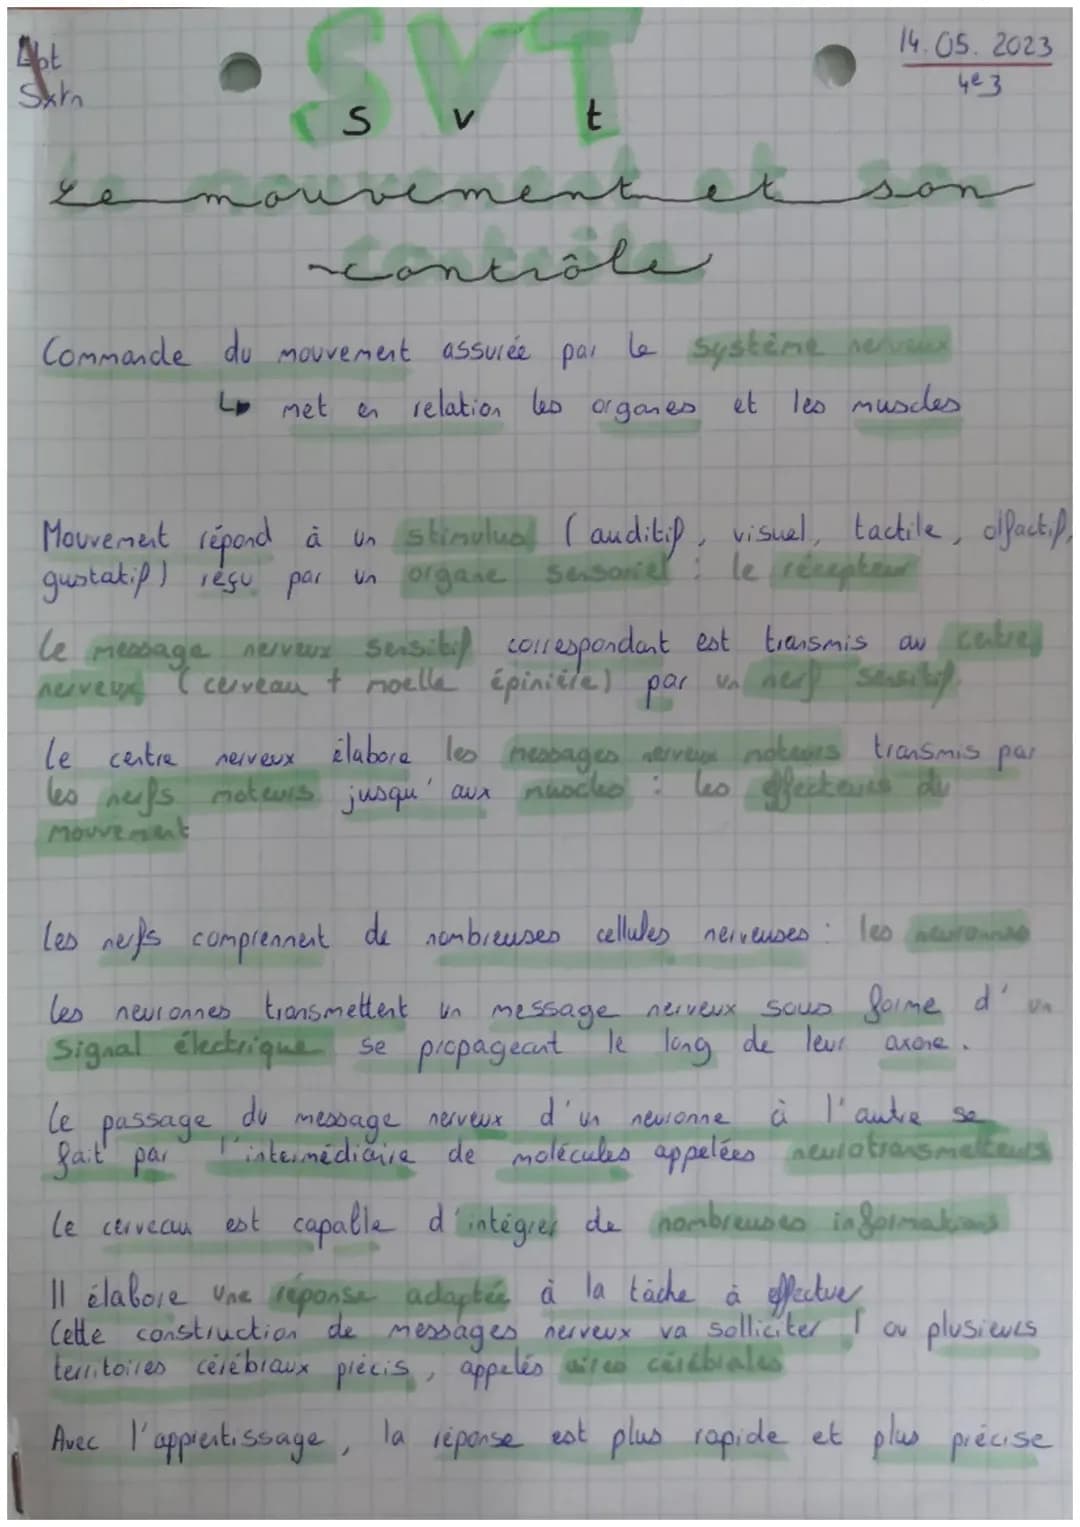 SVT
14.05.2023
4e3
s v t
Le mouvement et son
contrôle
Commande du mouvement assurée par le système nerveux
↳ met en relation les organes et les muscles
Mouvement répond à un stimulus (auditif, visuel, tactile, olfactif,
gustatif) reçu par un organe sensoriel : le récepteur
Le message nerveux sensitif correspondant est transmis au centre
nerveux (cerveau + moelle épinière) par un nerf sensitif.
Le centre nerveux élabore les messages nerveux moteurs transmis par
les nerfs moteurs jusqu'aux muscles : les effecteurs du
mouvement
Les nerfs comprennent de nombreuses cellules nerveuses : les neuronnes
Les neuronnes transmettent un message nerveux sous forme d'un
signal électrique se propageant le long de leur axone.
Le passage du message nerveux d'un neuronne à l'autre se
fait par l'intermédiaire de molécules appelées neurotransmetteurs
Le cerveau est capable d'intégrer de nombreuses informations
Il élabore une réponse adaptée à la tâche à effectuer
Cette construction de messages nerveux va solliciter 1 ou plusieurs
territoires cérébraux précis, appelés aires cérébrales
Avec l'apprentissage, la réponse est plus rapide et plus précise